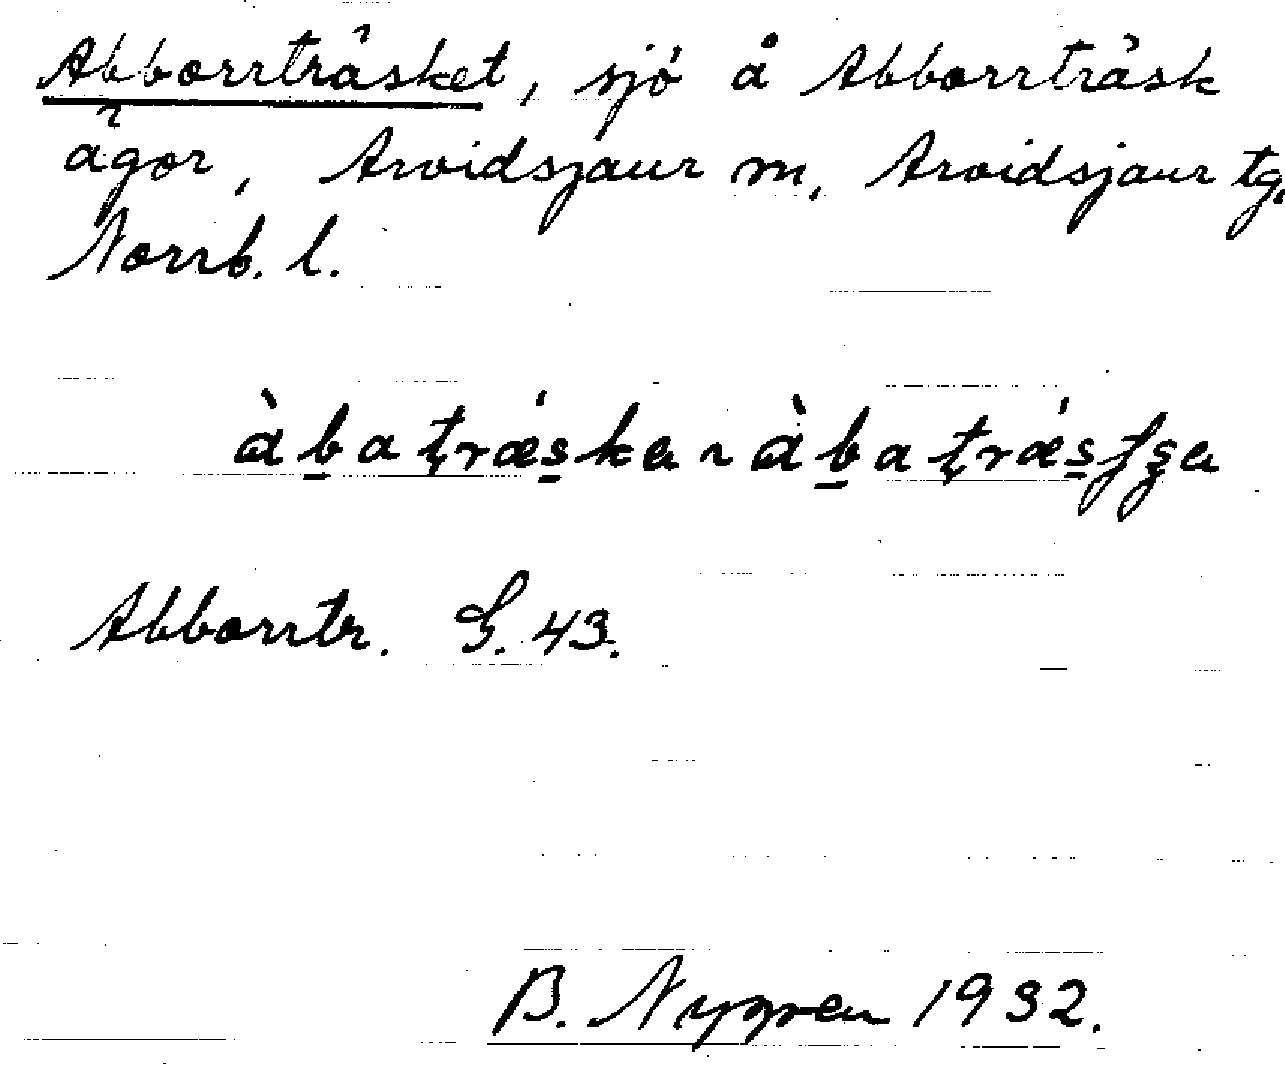 Abborrträsket, sjö å Abborrträsk
ägor, Arvidsjaur sn, Arvidsjaur tg,
Norrb. l.
àb̲aṭrǽs̲ka ~ àb̲aṭrǽs̲ʃʒa
Abborrtr. G. 43.
B. Nygren 1932.